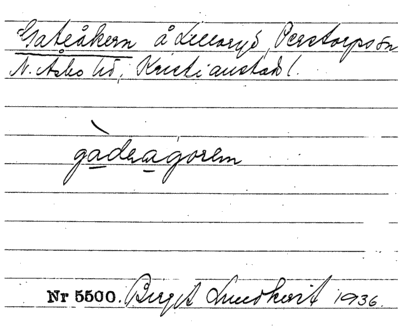 Gateåkern å Lilleryd, Perstorps sn
N. Åsbo hd, Kristianstads l.
gàdeagorem
Nr 5500. Birgit Lundkvist 1936.